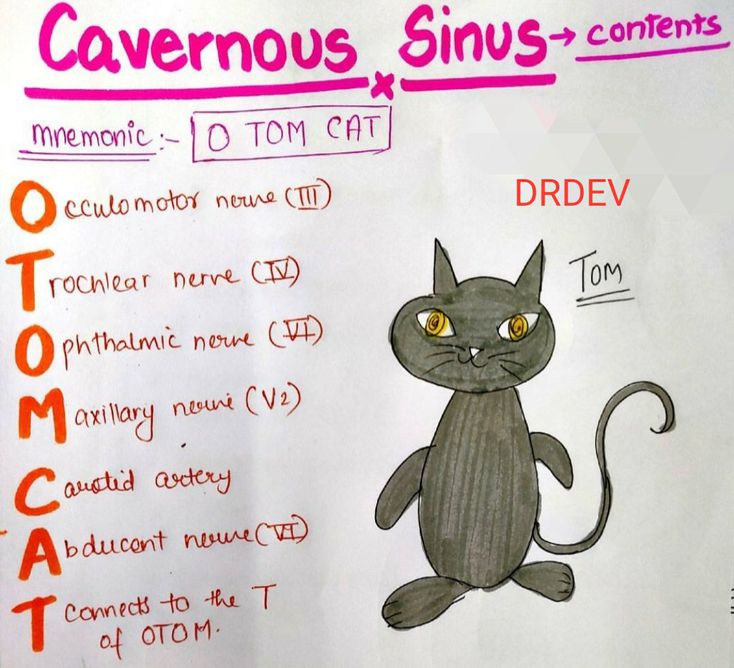 Cavernous Sinus → contents
mnemonic :- O TOM CAT
DRDEV
Occulomotor nerve (III)
Tom
Trochlear nerve (IV)
Ophthalmic nerve (VI)
Maxillary nerve (V2)
Carotid artery
Abducent nerve (VI)
T connects to the T
of OTOM.